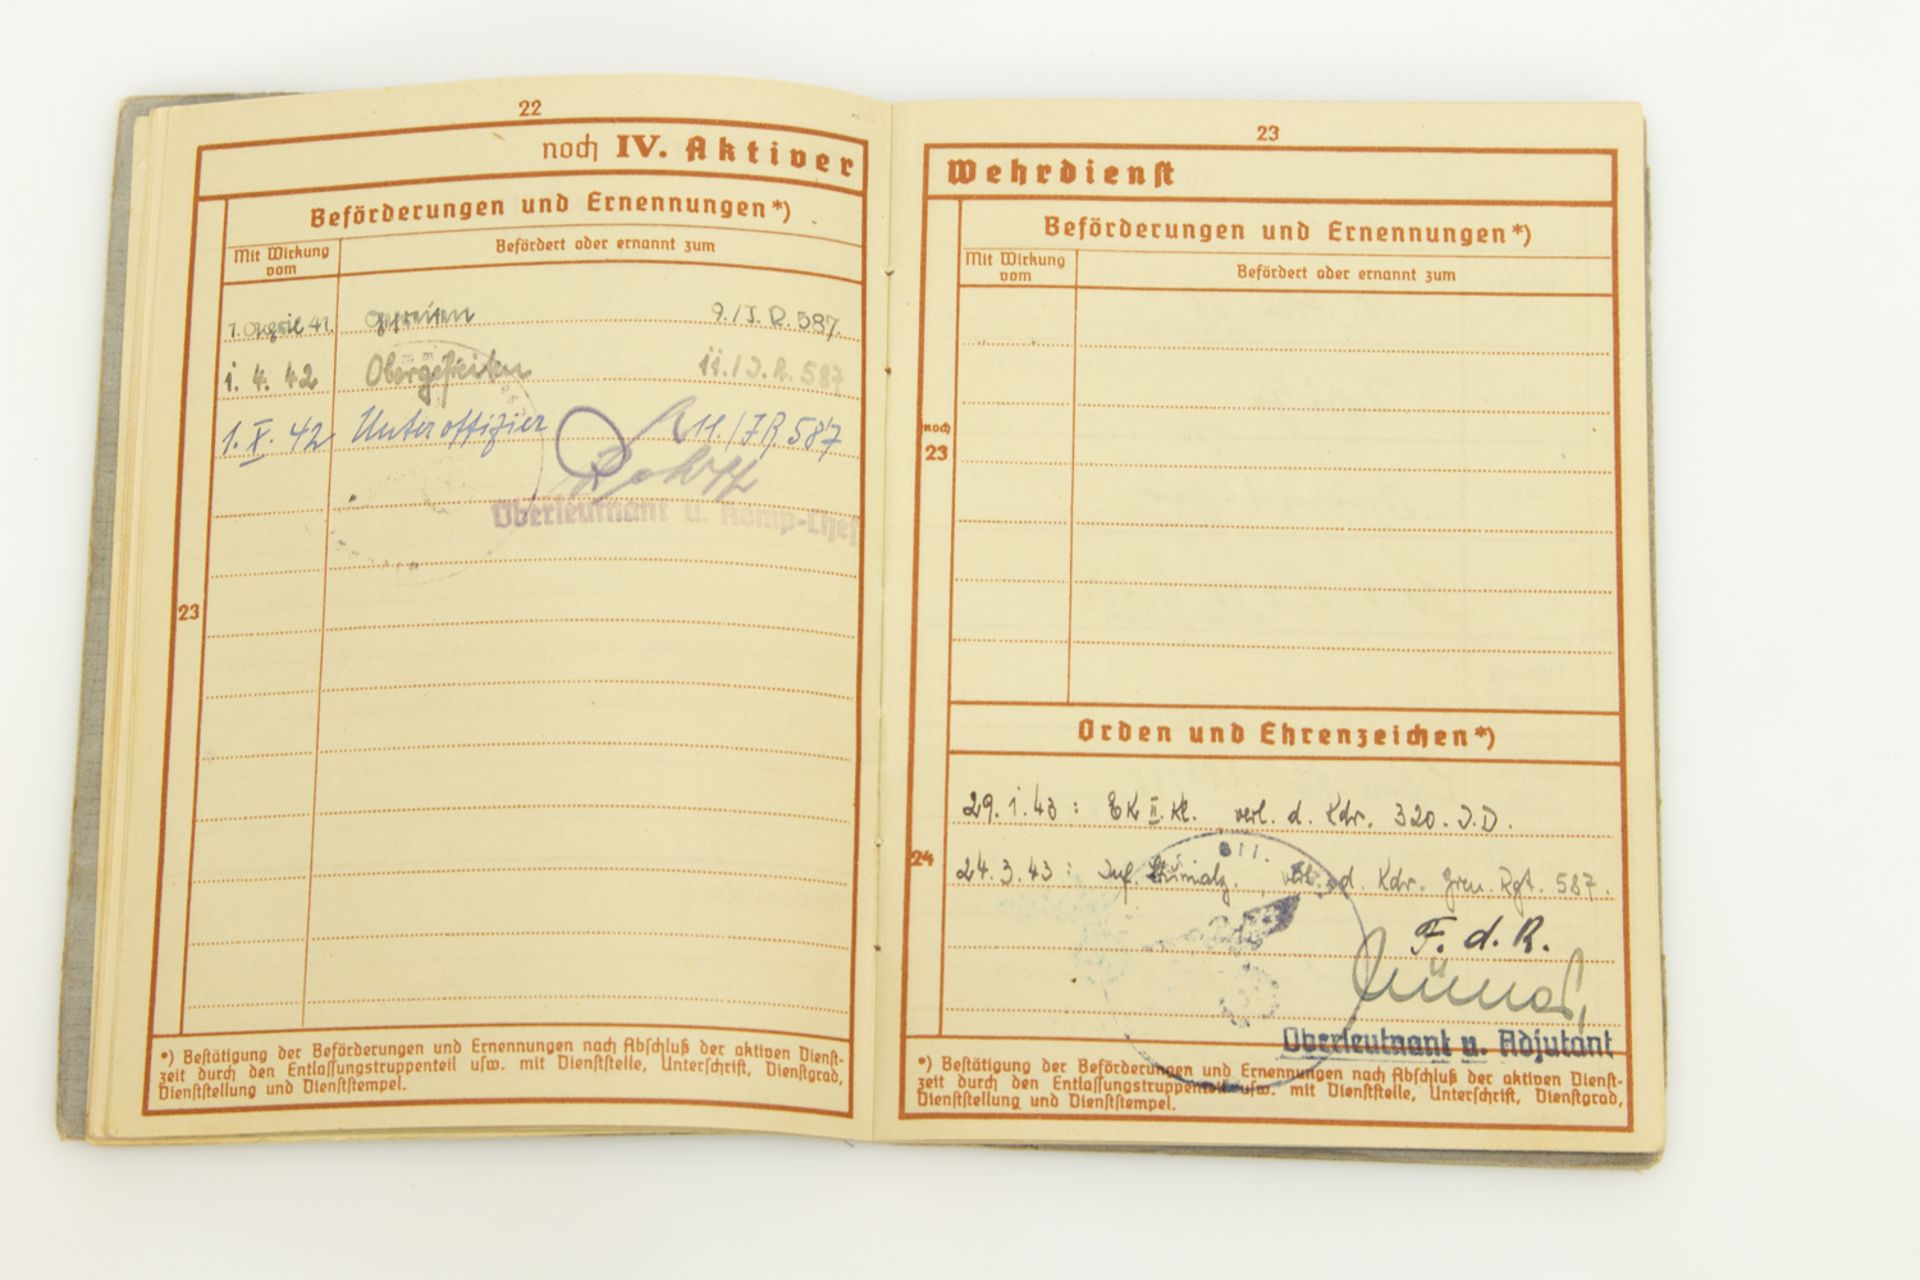 22
noch IV. Aktiver
Beförderungen und Ernennungen*)
Mit Wirkung vom
Befördert oder ernannt zum
1. April 41. Gefreiten 9./J.R.587.
1. 4. 42 Obergefreiten 11./J.R.587
1. X. 42 Unteroffizier 11./JR 587
Oberleutnant u. Komp-Chef
23
*) Bestätigung der Beförderungen und Ernennungen nach Abschluß der aktiven Dienst-
zeit durch den Entlassungstruppenteil usw. mit Dienststelle, Unterschrift, Dienstgrad,
Dienststellung und Dienststempel.
23
Wehrdienst
Beförderungen und Ernennungen*)
Mit Wirkung vom
Befördert oder ernannt zum
noch
23
Orden und Ehrenzeichen*)
29.1.43: EK II. Kl. verl. d. Kdr. 320. J.D.
24
24.3.43: Inf. Sturmabz., verl. d. Kdr. Gren. Rgt. 587.
F. d. R.
Oberleutnant u. Adjutant
*) Bestätigung der Beförderungen und Ernennungen nach Abschluß der aktiven Dienst-
zeit durch den Entlassungstruppenteil usw. mit Dienststelle, Unterschrift, Dienstgrad,
Dienststellung und Dienststempel.